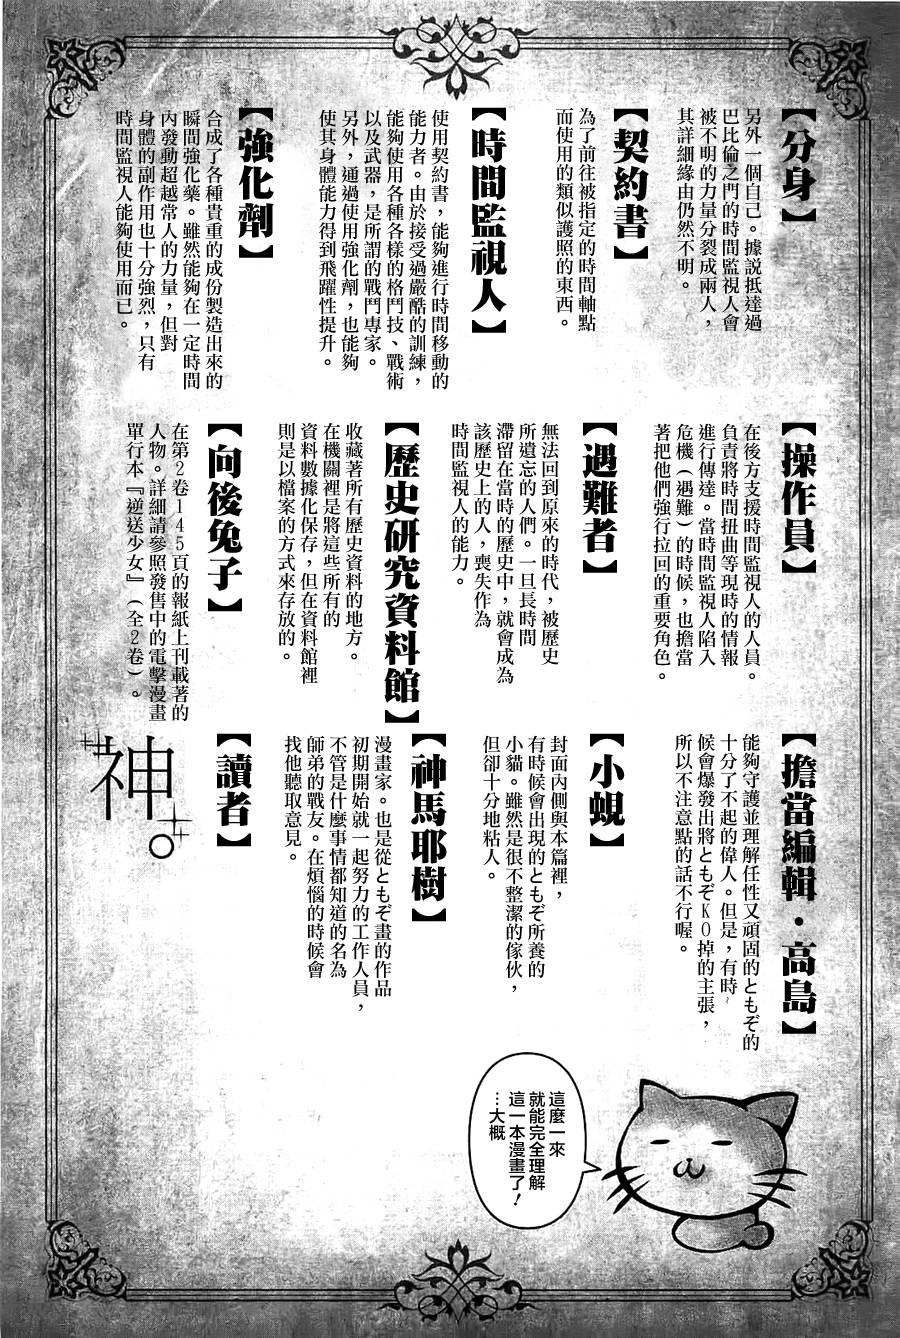 【分身】
另外一個自己。據説抵達過
巴比倫之門的時間監視人會
被不明的力量分裂成兩人，
其詳細緣由仍然不明。
【契約書】
為了前往被指定的時間軸點
而使用的類似護照的東西。
【時間監視人】
使用契約書，能夠進行時間移動的
能力者。由於接受過嚴酷的訓練，
能夠使用各種各樣的格鬥技、戰術
以及武器，是所謂的戰鬥專家。
另外，通過使用強化劑，也能夠
使其身體能力得到飛躍性提升。
【強化劑】
合成了各種貴重的成份製造出來的
瞬間強化藥。雖然能夠在一定時間
內發動超越常人的力量，但對
身體的副作用也十分強烈，只有
時間監視人能夠使用而已。
【操作員】
在後方支援時間監視人的人員。
負責將時間扭曲等現時的情報
進行傳達。當時間監視人陷入
危機（遇難）的時候，也擔當
著把他們強行拉回的重要角色。
【遇難者】
無法回到原來的時代，被歷史
所遺忘的人們。一旦長時間
滯留在當時的歷史中，就會成為
該歷史上的人，喪失作為
時間監視人的能力。
【歷史研究資料館】
收藏著所有歷史資料的地方。
在機關裡是將這些所有的
資料數據化保存，但在資料館裡
則是以檔案的方式來存放的。
【向後兔子】
在第2卷145頁的報紙上刊載著的
人物。詳細請參照發售中的電擊漫畫
單行本『逆送少女』（全2卷）。
【擔當編輯・高島】
能夠守護並理解任性又頑固的ともぞの
十分了不起的偉人。但是，有時
候會爆發出將ともぞKO掉的主張，
所以不注意點的話不行喔。
【小蜆】
封面內側與本篇裡，
有時候會出現的ともぞ所養的
小貓。雖然是很不整潔的傢伙，
但卻十分地粘人。
【神馬耶樹】
漫畫家。也是從ともぞ畫的作品
初期開始就一起努力的工作人員，
不管是什麼事情都知道的名為
師弟的戰友。在煩惱的時候會
找他聽取意見。
【讀者】
神。
這麼一來
就能完全理解
這一本漫畫了！
…大概